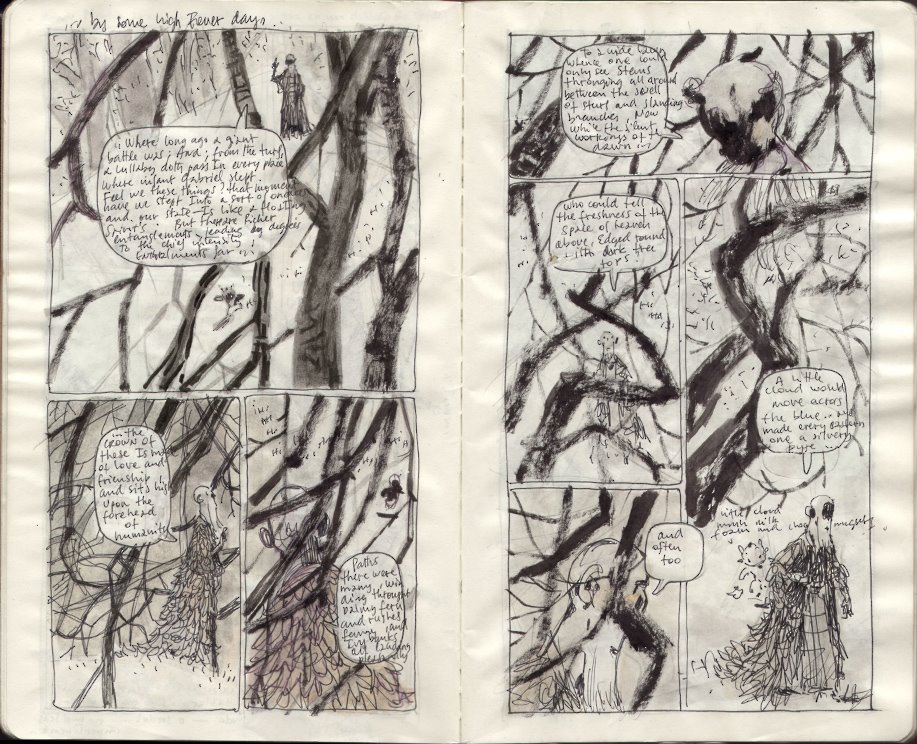 by some high fever days...
"Where long ago a giant
battle was; And; from the turf
a lullaby doth pass In every place
where infant Gabriel slept.
Feel we these things? that moment
have we stept Into a sort of oneness
and our state Is like a floating
Spirit's But there are Richer
entanglements, leading by degrees
To the chief intensity
in the
crown of
these Is made
of love and
frienship
and sits high
upon the
forehead
of
humanity
Paths
there were
many, win
ding through
palmy fern
and rushes
fenny and
Ivy banks
all leading
pleasantly
To a wide lawn
whence one could
only see Stems
thronging all around
between the swell
of turf and slanting
branches. Now
while the silent
workings of the
dawn
who could tell
the freshness of the
space of heaven
above, Edged round
with dark tree
tops
A little
cloud would
move across
the blue...
made every eastern
one a silvery
pyre
and
often
too
little cloud
milk
foam and